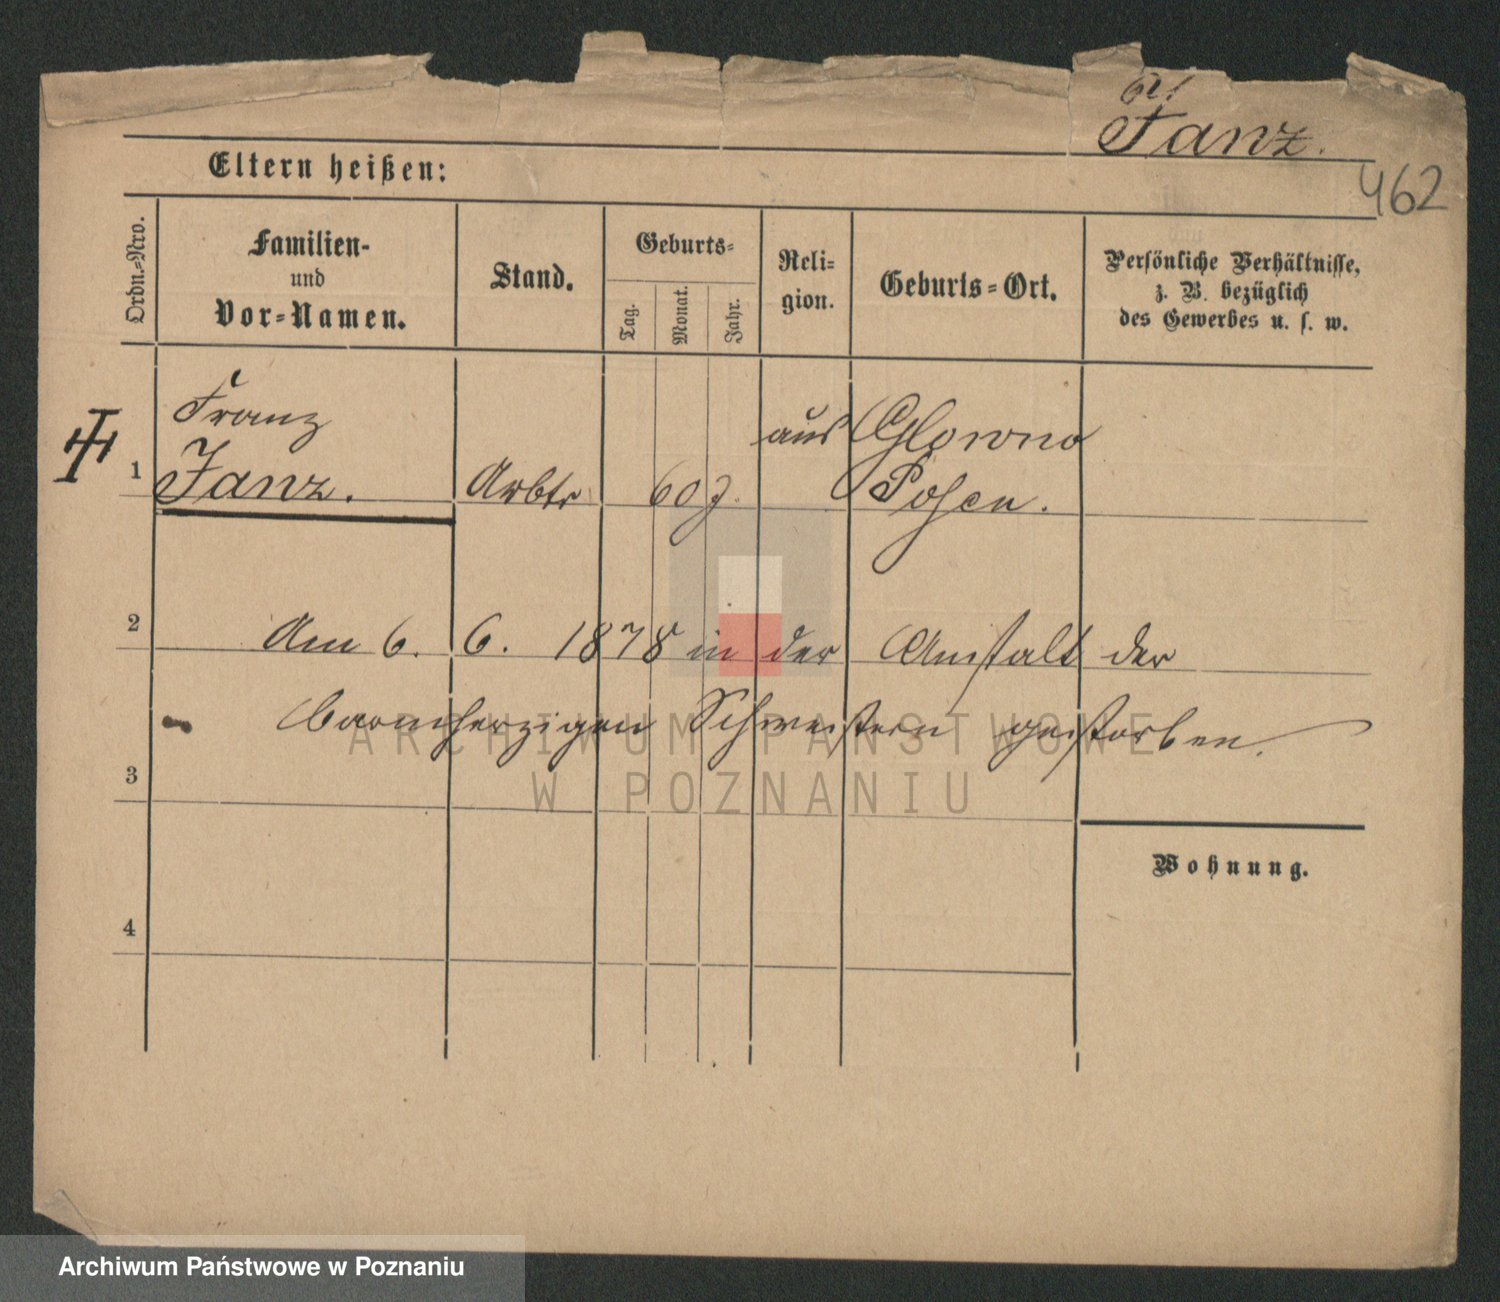 Janz.
462
Eltern heißen:
Ordn.-Nro.
Familien-
und
Vor-Namen.
Stand.
Geburts-
Tag.
Monat.
Jahr.
Reli-
gion.
Geburts-Ort.
Persönliche Verhältnisse,
z. B. bezüglich
des Gewerbes u. s. w.
Franz
aus Glowno
1 Janz. Arbtr 60 J. Posen.
2 Am 6. 6. 1878 in der Anstalt der
barmherzigen Schwestern gestorben.
3
Wohnung.
4
ARCHIWUM PAŃSTWOWE
W POZNANIU
Archiwum Państwowe w Poznaniu